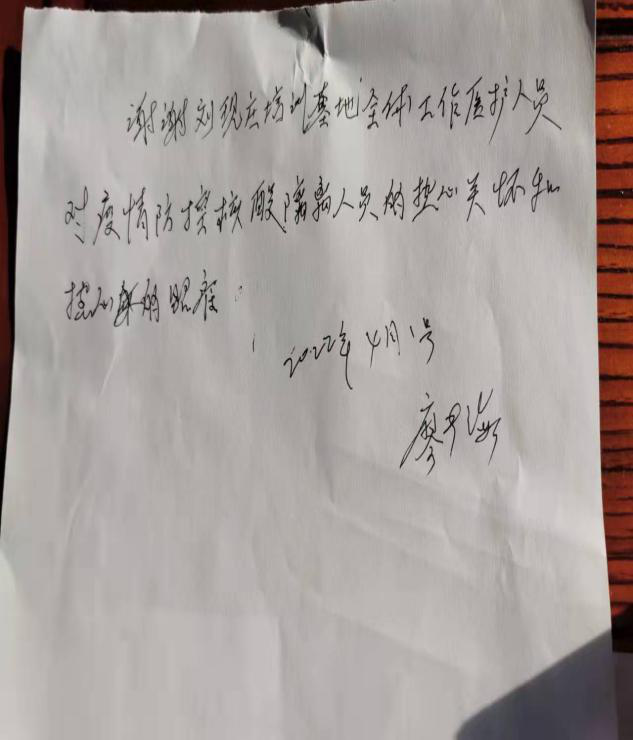 谢谢刘现庄培训基地全体工作医护人员
对疫情防控核酸隔离人员的热心关怀和
热心的照应。
2022年4月1号
廖尹海